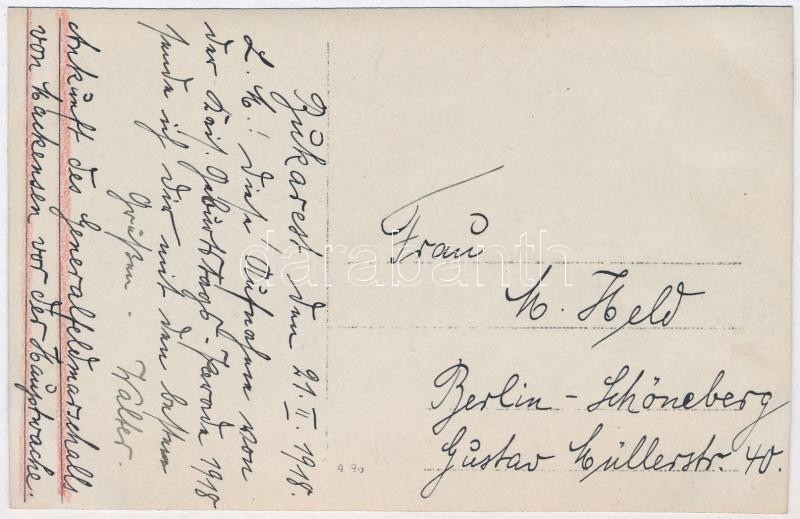 Bukarest den 21.II.1918.
L. M.! Diese Aufnahme von
der Kais. Geburtstags-Parade 1918
sende ich Dir mit den besten
Grüßen. Walter.
Ankunft des Generalfeldmarschalls
von Mackensen vor der Hauptwache.
Frau
M. Held
Berlin-Schöneberg
Gustav Müllerstr. 40.
darabanth